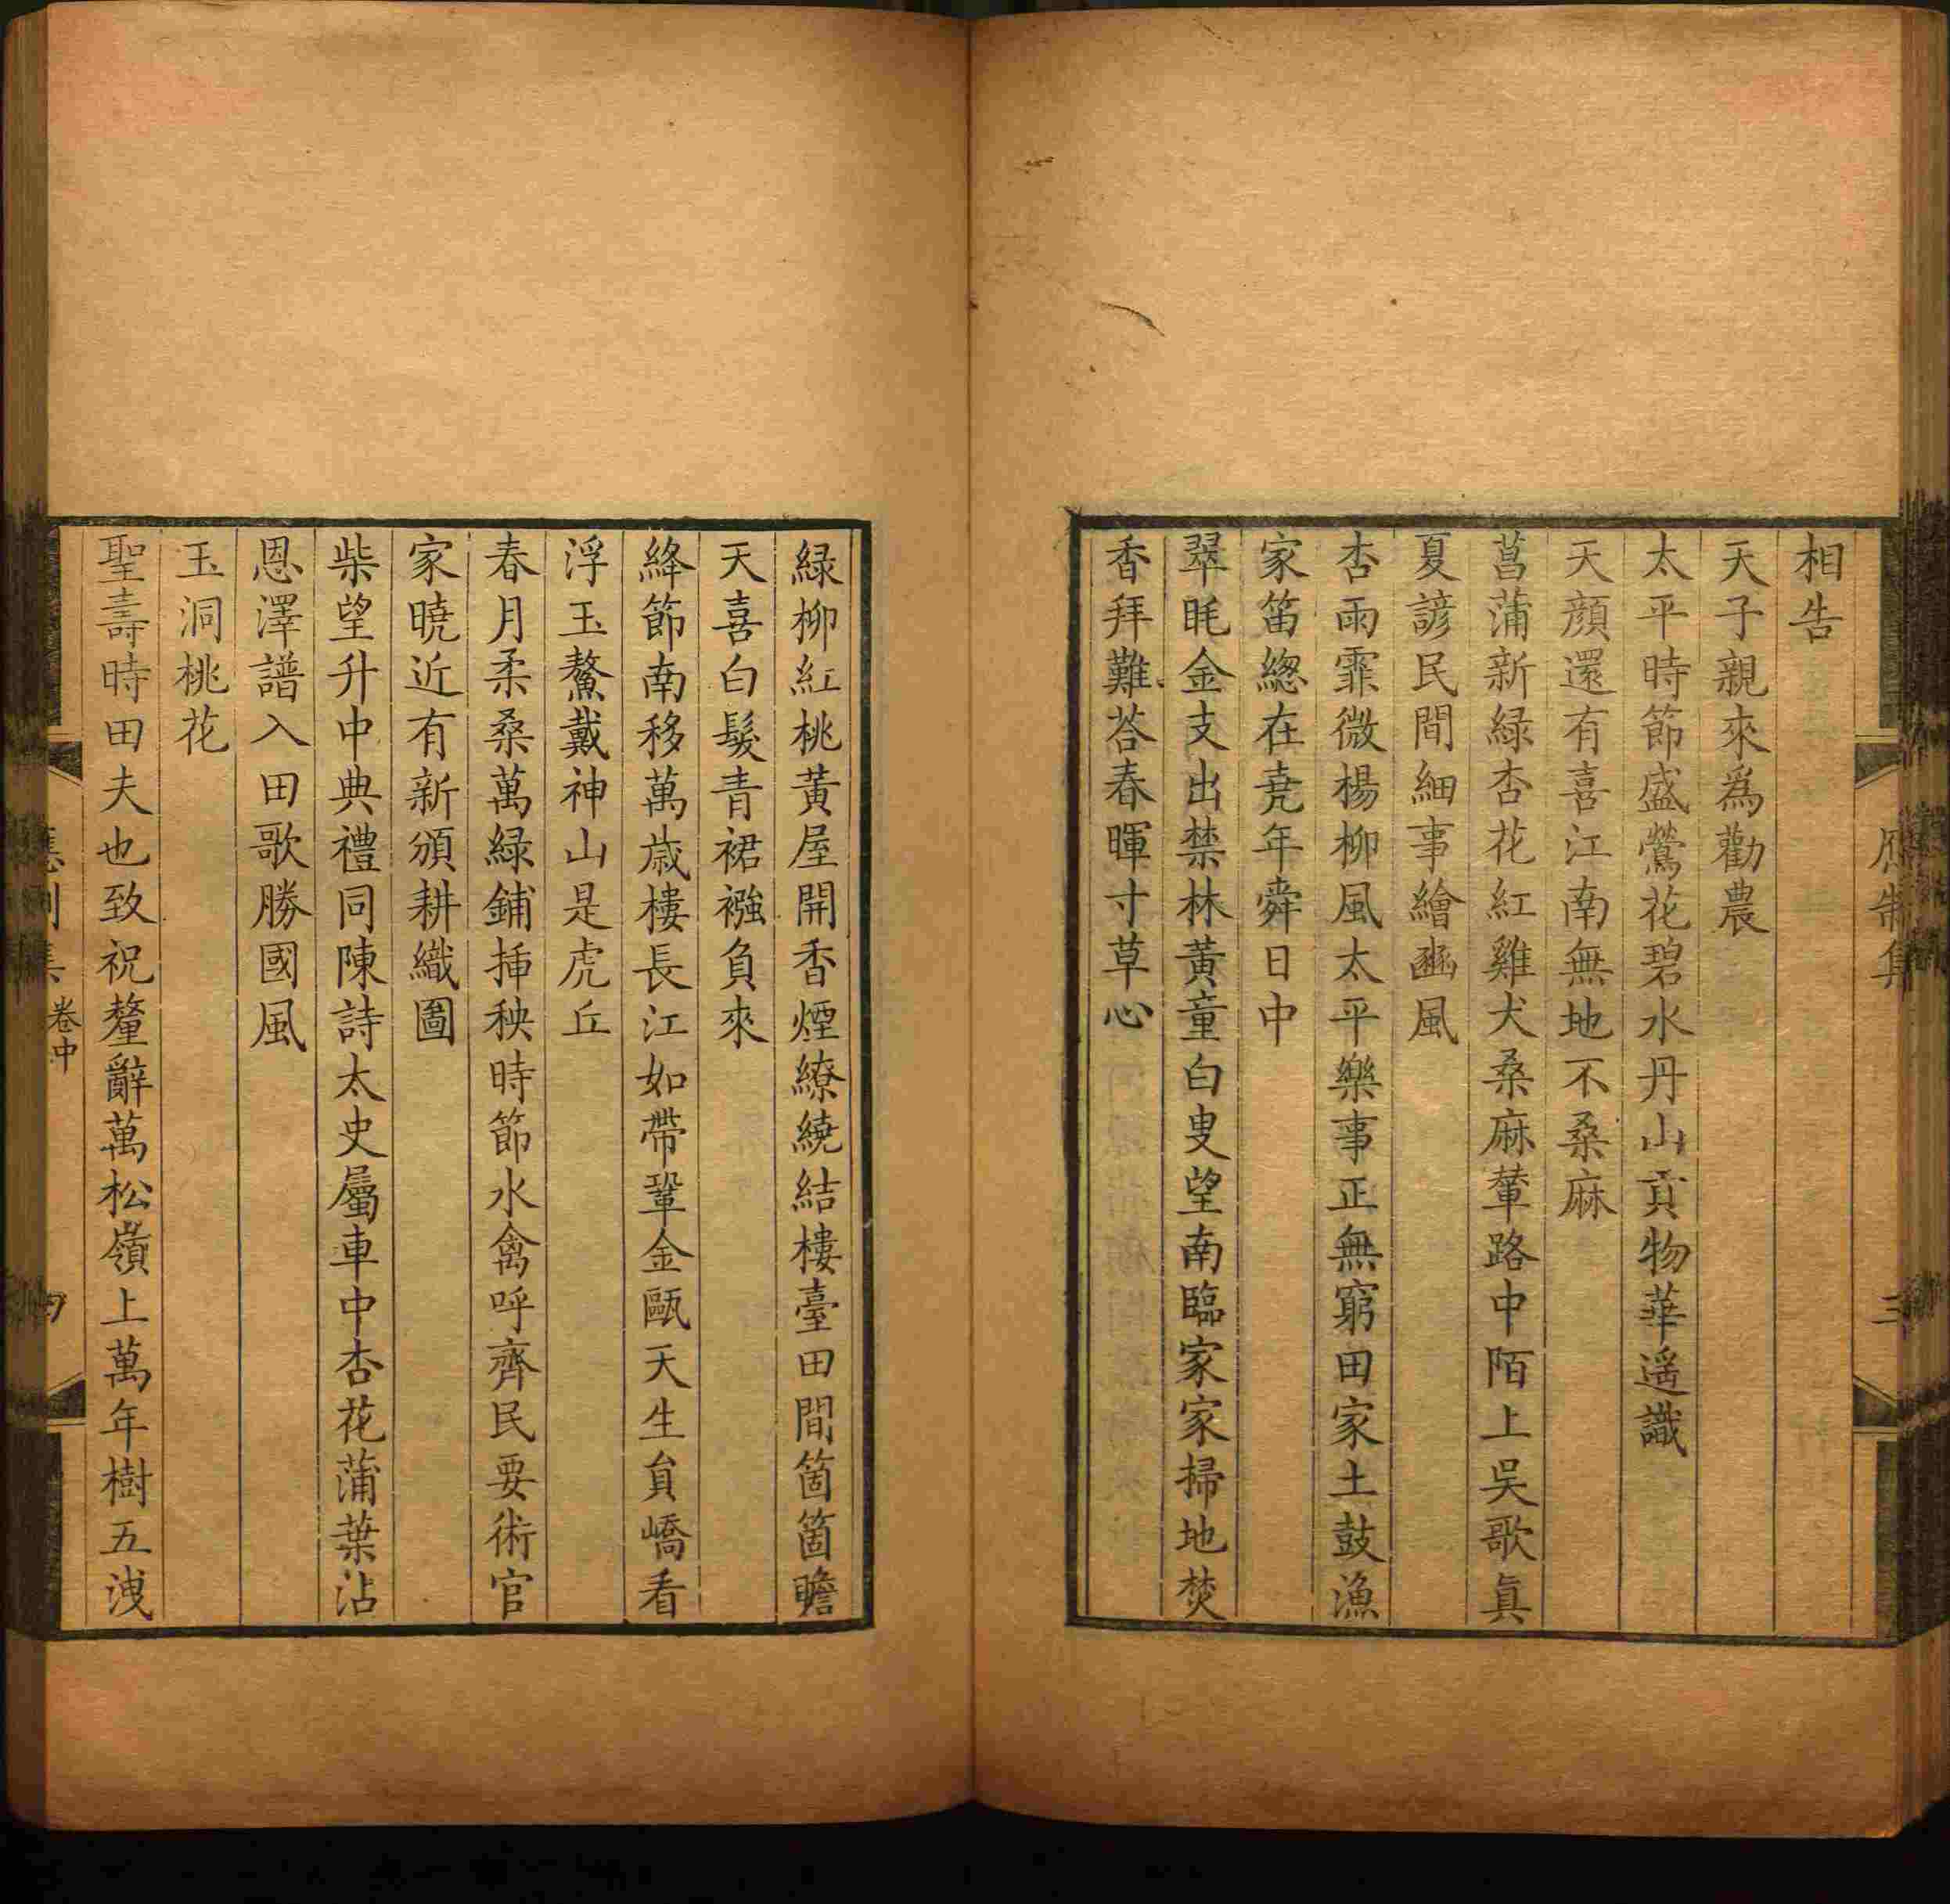 相告
天子親來爲勸農
太平時節盛鶯花碧水丹山貢物華遥識
天顔還有喜江南無地不桑麻
菖蒲新緑杏花紅雞犬桑麻輦路中陌上吳歌眞
夏諺民間細事繪豳風
杏雨霏微楊柳風太平樂事正無窮田家土鼓漁
家笛緫在堯年舜日中
翠眊金支出禁林黄童白叟望南臨家家掃地焚
香拜難荅春暉寸草心
緑柳紅桃黄屋開香煙繚繞結樓臺田間箇箇瞻
天喜白髮青裙襁負來
絳節南移萬歲樓長江如帶鞏金甌天生貟嶠看
浮玉鰲戴神山是虎丘
春月柔桑萬緑鋪挿秧時節水禽呼齊民要術官
家曉近有新頒耕織圖
柴望升中典禮同陳詩太史屬車中杏花蒲葉沾
恩澤譜入田歌勝國風
玉洞桃花
聖壽時田夫也致祝釐辭萬松嶺上萬年樹五洩
應制集 卷中 四